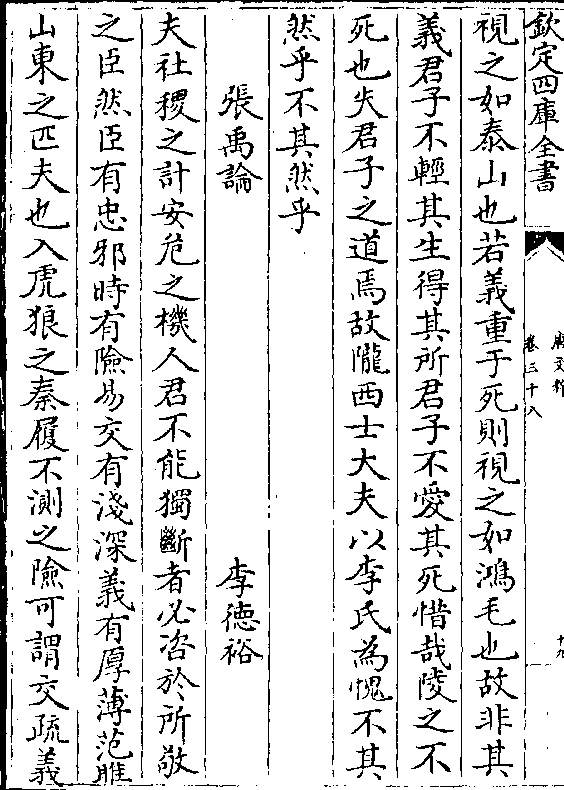 欽定四庫全書
卷三十八
視之如泰山也若義重于死則視之如鴻毛也故非其
義君子不輕其生得其所君子不愛其死惜哉陵之不
死也失君子之道焉故隴西士大夫以李氏為愧不其
然乎不其然乎
張禹論 李德裕
夫社稷之計安危之機人君不能獨斷者必咨於所敬
之臣然臣有忠邪時有險易交有淺深義有厚薄范雎
山東之匹夫也入虎狼之秦履不測之險可謂交疏義